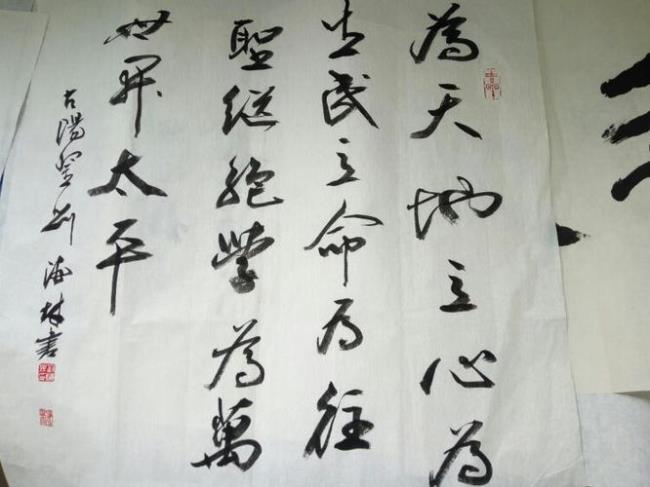 為天地立心為
生民立命为往
聖继絕學為萬
世開太平
古陽海林書